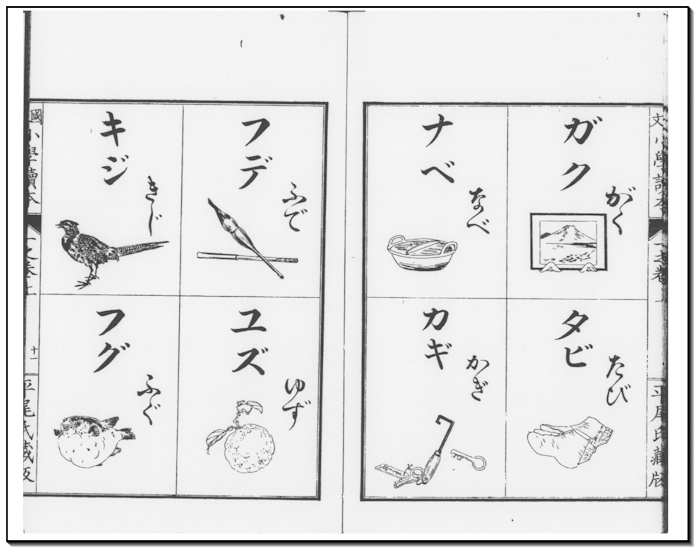 小學讀本
平尾氏藏版
ガク
がく
タビ
たび
ナベ
なべ
カギ
かぎ
フデ
ふで
ユズ
ゆず
キジ
きじ
フグ
ふぐ
小學讀本
十一
平尾氏藏版